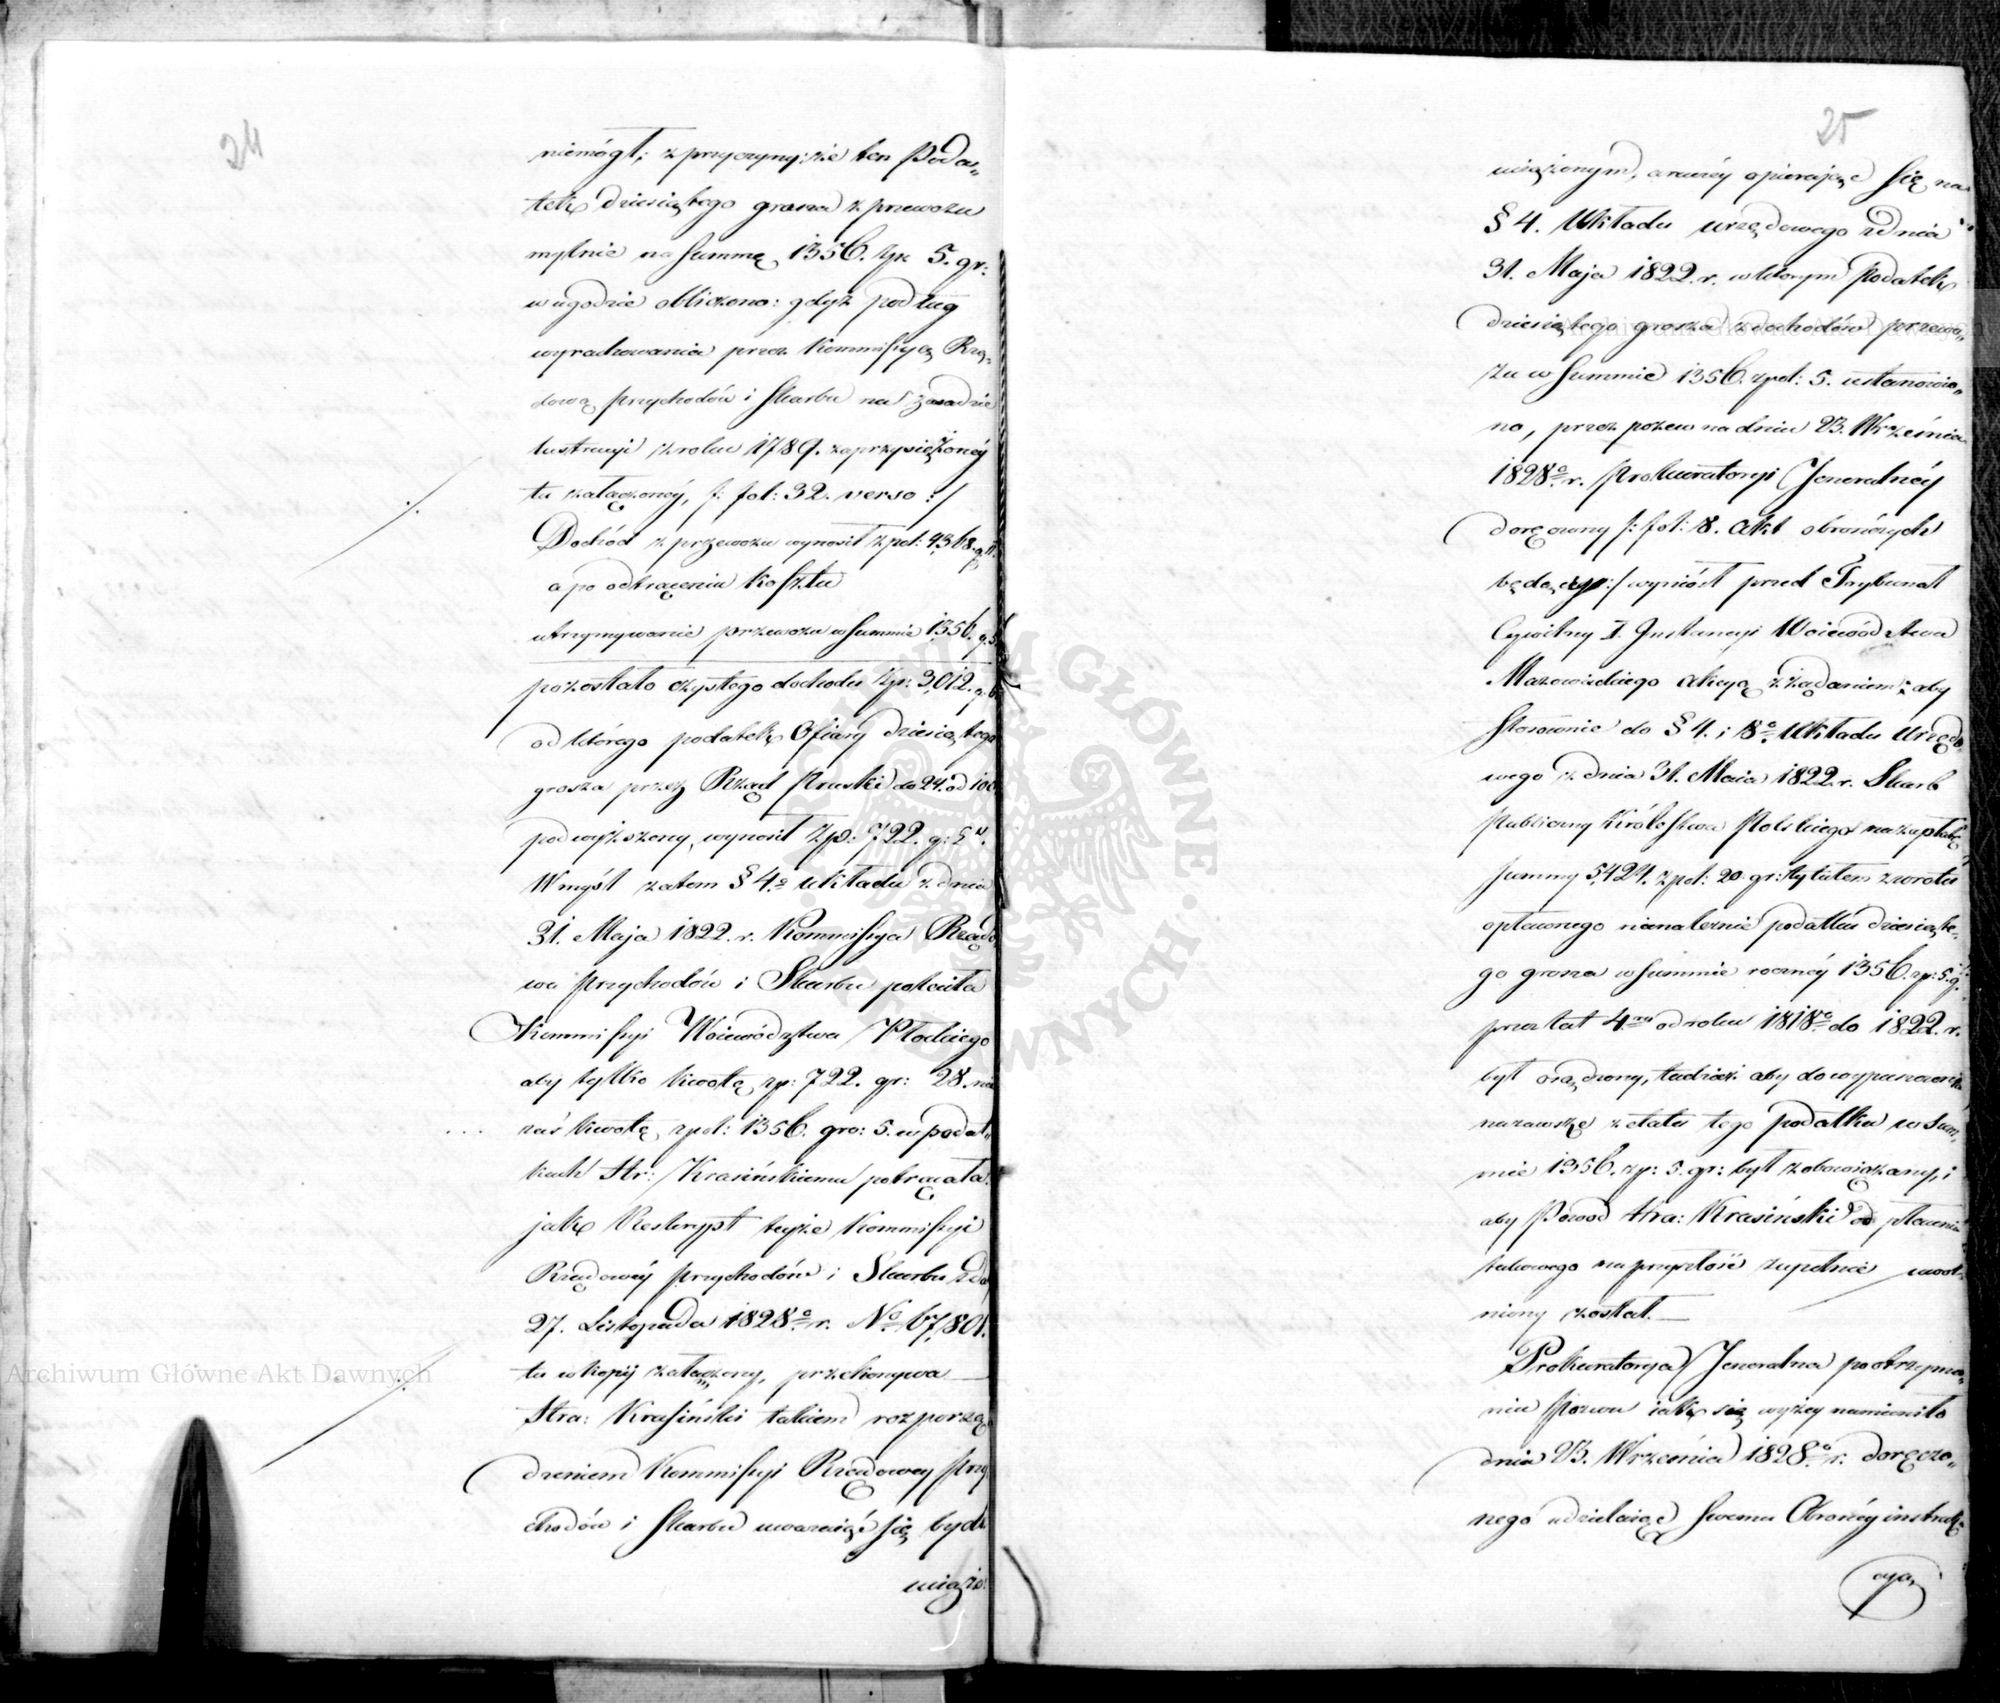 24
niemógł; z przyczyny: że ten Poda„
tek dziesiątego grosza z przewozu
mylnie na Summę 1356. Złp 5. gr:
w ugodzie obliczono: gdyż podług
wyrachowania przez Kommissyę Rzą„
dową przychodów i Skarbu na zasadzie
lustracyi z roku 1789. zaprzysiężonéy
tu załączonéy, /: fol: 32. verso :/
Dochód z przewozu wynosił zpol: 4368. g. 11.
a po odtrąceniu kosztu
utrzymywanie przewozu w Summie 1356. g. 5
pozostało czystego dochodu Złp: 3,012. g. 6
od którego podatek Ofiary dziesiątego
grosza przez Rząd Pruski do 24. od 100
podwyższony, wynosił Złp: 722. g:
W myśl zatem § 4.º układu z dnia
31. Maja 1822. r. Kommissya Rządo
wa Przychodów i Skarbu poleciła
Kommissyi Woiewództwa Płockiego
aby tylko kwotę zp: 722. gr: 28. nie
zaś kwotę zpol: 1356. gro: 5. w podat„
kach Hr: Krasińskiemu potrącała.
jak Reskrypt teyże Kommissyi
Rządowéy Przychodów i Skarbu z d.
27. Listopada 1828º r. Nº 67,801.
tu w kopij załączony, przekonywa —
Hra: Krasiński takiem rozporzą
dzeniem Kommissyi Rządowey Przy
chodów i Skarbu uważaiąc się bydź
uciążo:
25
uciążonym, a raczéy opieraiąc się na
§ 4. Układu urzędowego z dnia
31. Maja 1822. r. w którym Podatek
dziesiątego grosza z dochodów przewo„
zu w Summie 1356. zpol: 5. ustanowio„
no, przez pozew na dniu 23. Września
1828º r. Prokuratoryi Jeneralnéy
doręczony /: fol: 8. Akt obrończych
będący :/ wyniósł przed Trybunał
Cywilny I. Instancyi Woiewództwa
Mazowieckiego akcyą z żądaniem: aby
stosownie do § 4. i 8º Układu Urzędo
wego z dnia 31. Maia 1822. r. Skarb
Publiczny Królestwa Polskiego na zapłatę
Summy 5,424. zpol: 20 gr: tytułem zwrotu
opłaconego nienależnie podatku dziesiąte„
go grosza w Summie roczney 1356. zp: 5. g.
przez lat 4ry od roku 1818º do 1822. r.
był osądzony, tudzież aby do wypanowania
na zawsze z etatu tego podatku w Sum„
mie 1356. zp: 5. gr: był zobowiązany, i
aby Powod Hra: Krasiński od płacenia
takowego na przyszłość zupełnie uwol„
niony został. —
Prokuratorya Jeneralna po otrzyma„
niu Pozwu iak się wyżey namieniło
dnia 23. Września 1828º r. doręczo„
nego udzielaiąc Swemu Obrońcy instruk„
cyą
ARCHIWUM GŁÓWNE AKT DAWNYCH
Archiwum Główne Akt Dawnych